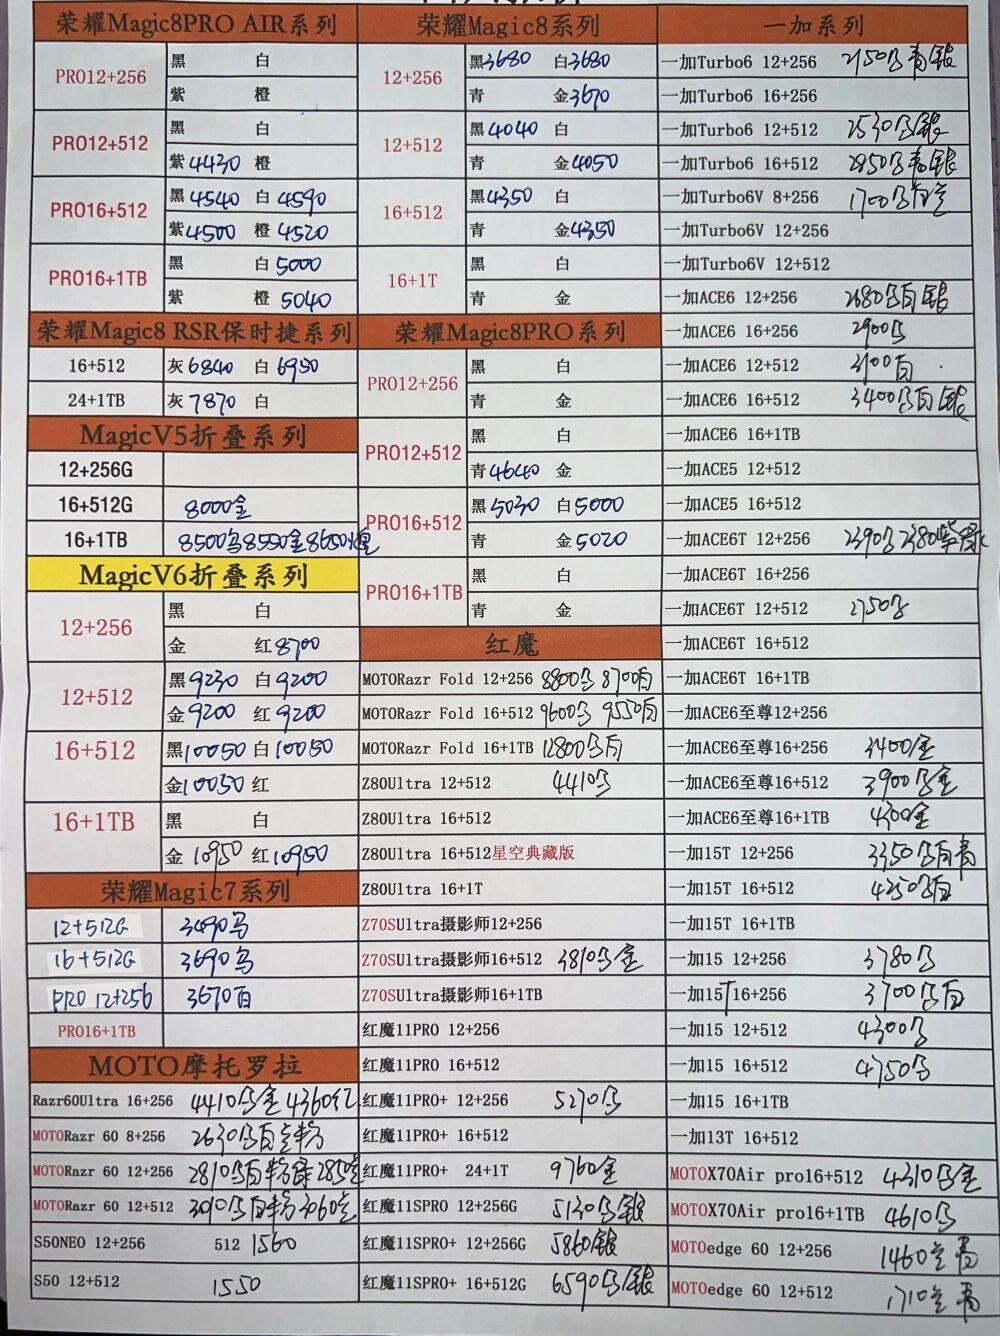 荣耀Magic8PRO AIR系列
PRO12+256 黑 白
紫 橙
PRO12+512 黑 白
紫4430 橙
PRO16+512 黑4540 白4590
紫4500 橙4520
PRO16+1TB 黑 白5000
紫 橙5040
荣耀Magic8 RSR保时捷系列
16+512 灰6840 白6950
24+1TB 灰7870 白
MagicV5折叠系列
12+256G
16+512G 8000金
16+1TB 8500乌8550金8650
MagicV6折叠系列
12+256 黑 白
金 红8700
12+512 黑9230 白9200
金9200 红9200
16+512 黑10050 白10050
金10050 红
16+1TB 黑 白
金10950 红10950
荣耀Magic7系列
12+512G 3490乌
16+512G 3690乌
PRO 12+256 3670百
PRO16+1TB
MOTO摩托罗拉
Razr60Ultra 16+256 4410乌金 4360红
MOTORazr 60 8+256 2630乌百 粉
MOTORazr 60 12+256 2810乌百粉绿 2850
MOTORazr 60 12+512 3090乌百粉 3060
S50NEO 12+256 512 1560
S50 12+512 1550
荣耀Magic8系列
12+256 黑3680 白3680
青 金3670
12+512 黑4040 白
青 金4050
16+512 黑4350 白
青 金4350
16+1T 黑 白
青 金
荣耀Magic8PRO系列
PRO12+256 黑 白
青 金
PRO12+512 黑 白
青4640 金
PRO16+512 黑5030 白5000
青 金5020
PRO16+1TB 黑 白
青 金
红魔
MOTORazr Fold 12+256 8800乌 8700百
MOTORazr Fold 16+512 9600乌 9550百
MOTORazr Fold 16+1TB 12800乌百
Z80Ultra 12+512 4410乌
Z80Ultra 16+512
Z80Ultra 16+512星空典藏版
Z80Ultra 16+1T
Z70SUltra摄影师12+256
Z70SUltra摄影师16+512 3810乌金
Z70SUltra摄影师16+1TB
红魔11PRO 12+256
红魔11PRO 16+512
红魔11PRO+ 12+256 5270乌
红魔11PRO+ 16+512
红魔11PRO+ 24+1T 9760金
红魔11SPRO 12+256G 5130乌银
红魔11SPRO+ 12+256G 5860银
红魔11SPRO+ 16+512G 6590乌银
一加系列
一加Turbo6 12+256 2150乌青银
一加Turbo6 16+256
一加Turbo6 12+512 2530乌银
一加Turbo6 16+512 2850乌青银
一加Turbo6V 8+256 1700乌
一加Turbo6V 12+256
一加Turbo6V 12+512
一加ACE6 12+256 2680乌百银
一加ACE6 16+256 2900乌
一加ACE6 12+512 3100百
一加ACE6 16+512 3400乌百银
一加ACE6 16+1TB
一加ACE5 12+512
一加ACE5 16+512
一加ACE6T 12+256 2390乌2380紫绿
一加ACE6T 16+256
一加ACE6T 12+512 2750乌
一加ACE6T 16+512
一加ACE6T 16+1TB
一加ACE6至尊12+256
一加ACE6至尊16+256 3400金
一加ACE6至尊16+512 3900乌金
一加ACE6至尊16+1TB 4300金
一加15T 12+256 3350乌百青
一加15T 16+512 4250乌百
一加15T 16+1TB
一加15 12+256 3780乌
一加15T16+256 3700乌百
一加15 12+512 4300乌
一加15 16+512 4750乌
一加15 16+1TB
一加13T 16+512
MOTOX70Air pro16+512 4310乌金
MOTOX70Air pro16+1TB 4610乌
MOTOedge 60 12+256 1460 青
MOTOedge 60 12+512 1710 青